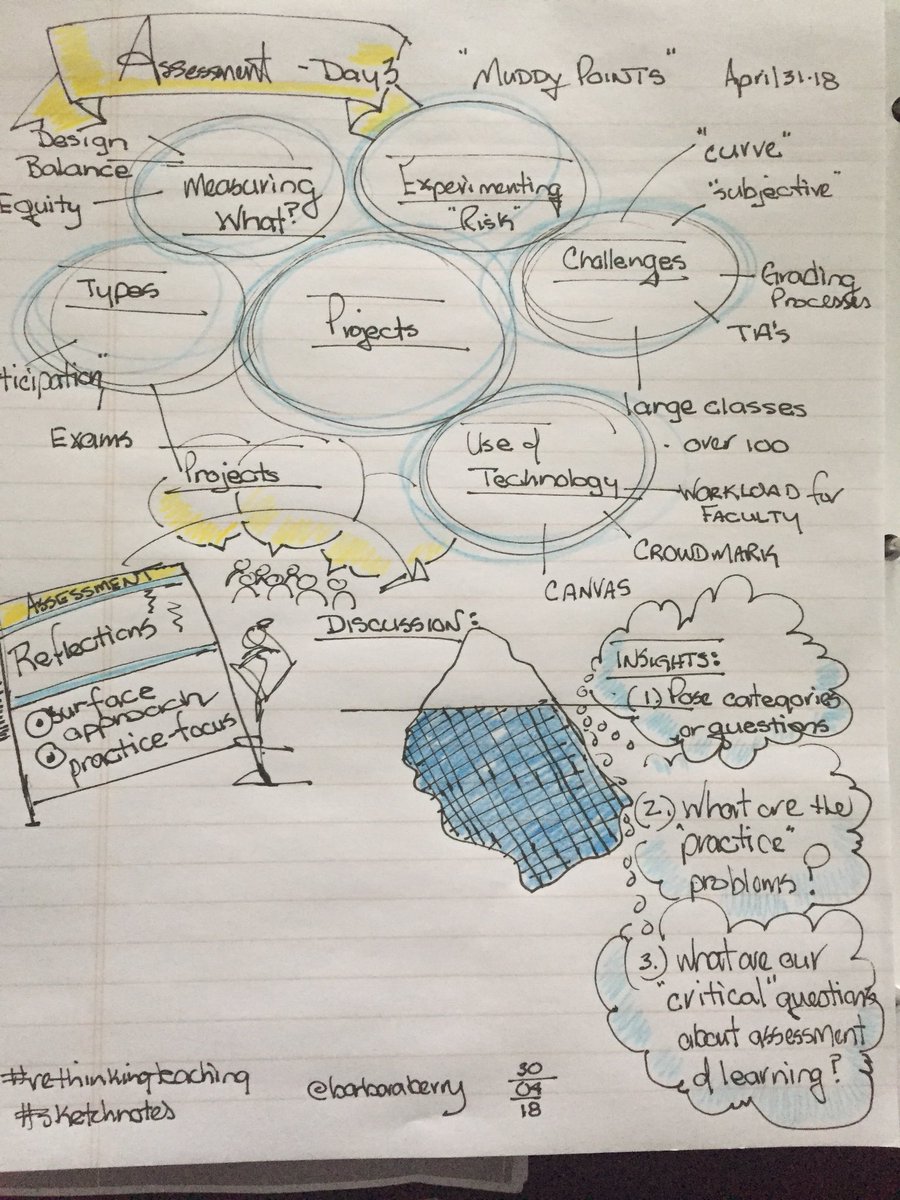 Assessment - Day 3
"Muddy Points"
April 31.18
Design
Balance
Equity
Measuring
What?
Experimenting
"Risk"
"curve"
"subjective"
Challenges
Grading
Processes
TA's
large classes
· over 100
Types
ticipation"
Exams
Projects
Projects
Use of
Technology
WORKLOAD for
FACULTY
CROWDMARK
CANVAS
ASSESSMENT
Reflections
surface
approach
practice-focus
DISCUSSION:
INSIGHTS:
(1.) Pose categories
or questions
(2.) What are the
"practice"
problems?
3.) What are our
"critical" questions
about assessment
of learning?
#rethinkingteaching
#sketchnotes
@barbaraberry
30
04
18